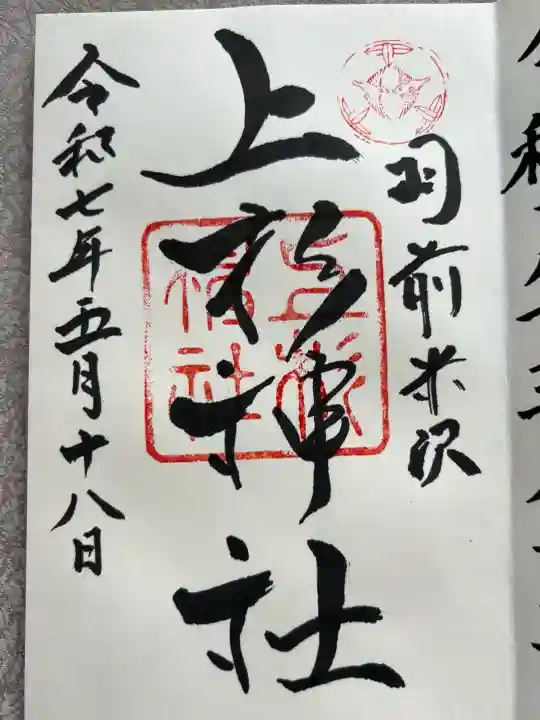 羽前米沢
上杉神社
上杉神社
令和七年五月十八日